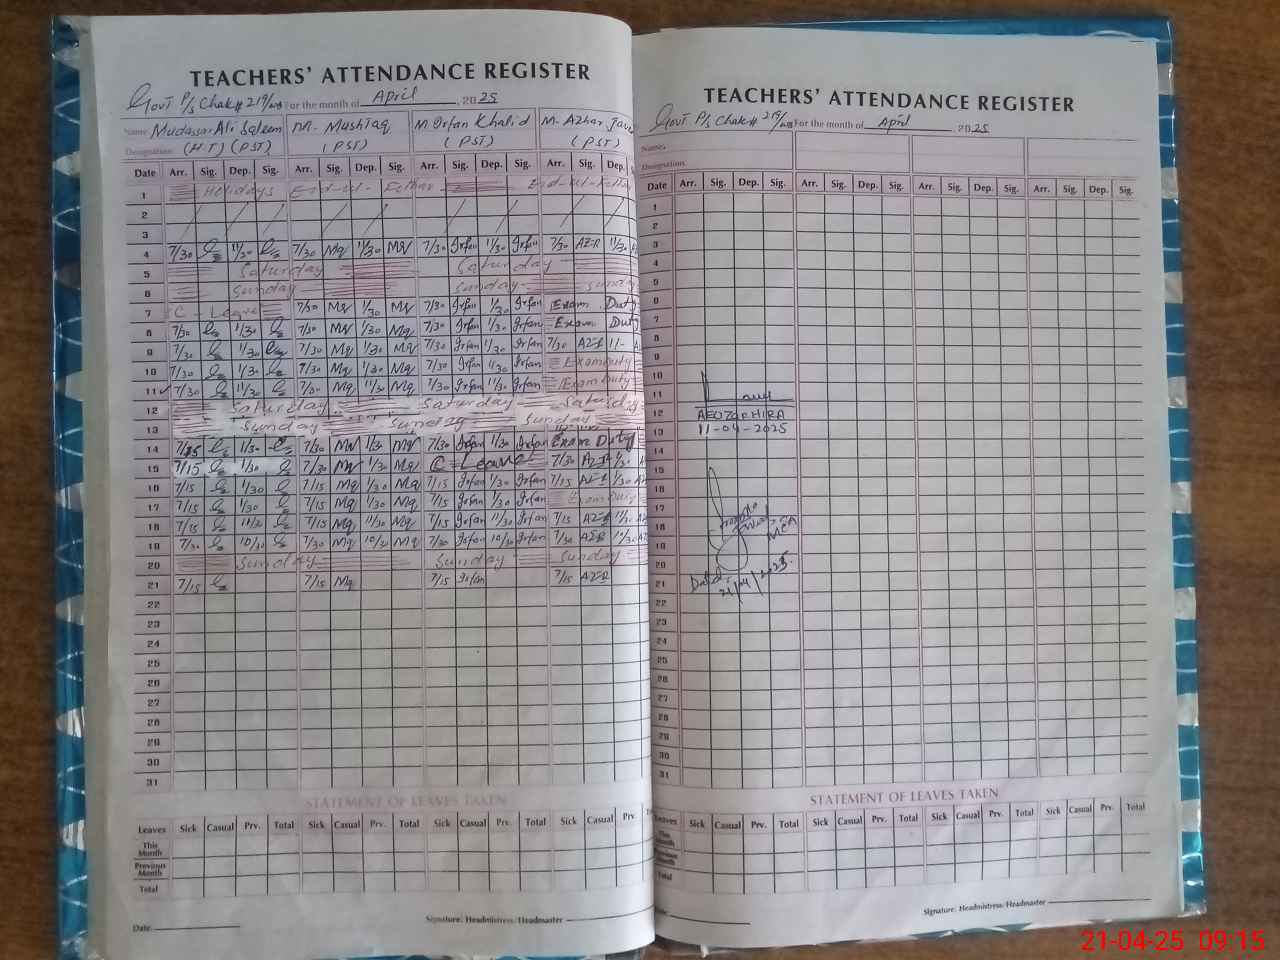 TEACHERS' ATTENDANCE REGISTER
Govt P/S Chak# 219/WB For the month of April, 2025
Name: Mudassar Ali Saleem M. Mushtaq M. Irfan Khalid M. Azhar
Designation: (HT) (PST) (PST) (PST) (PST)
Date Arr. Sig. Dep. Sig. Arr. Sig. Dep. Sig. Arr. Sig. Dep. Sig. Arr. Sig. Dep.
1 Holidays Eid-ul-Fether Eid-ul-Fether
2
3
4 7/30 11/30 7/30 Mq 11/30 Mq 7/30 Irfan 11/30 Irfan 7/30 AZ-R 11/30
5 Saturday Saturday
6 Sunday Sunday Sunday
7 C - Leave 7/30 Mq 1/30 Mq 7/30 Irfan 1/30 Irfan Exam Duty
8 7/30 1/30 7/30 Mq 1/30 Mq 7/30 Irfan 1/30 Irfan Exam Duty
9 7/30 1/30 7/30 Mq 1/30 Mq 7/30 Irfan 1/30 Irfan 7/30 AZ-R 11-
10 7/30 1/30 7/30 Mq 1/30 Mq 7/30 Irfan 1/30 Irfan Exam Duty
11 7/30 11/30 7/30 Mq 11/30 Mq 7/30 Irfan 11/30 Irfan Exam Duty
12 Saturday Saturday Saturday
13 Sunday Sunday Sunday
14 7/15 1/30 7/30 Mq 1/30 Mq 7/30 Irfan 1/30 Irfan Exam Duty
15 7/15 1/30 7/30 Mq 1/30 Mq C - Leave 7/30 AZ-R 1/30
16 7/15 1/30 7/15 Mq 1/30 Mq 7/15 Irfan 1/30 Irfan 7/15 AZ-R 1/30
17 7/15 1/30 7/15 Mq 1/30 Mq 7/15 Irfan 1/30 Irfan Exam Duty
18 7/15 11/30 7/15 Mq 11/30 Mq 7/15 Irfan 11/30 Irfan 7/15 AZ-R 11/30
19 7/30 10/30 7/30 Mq 10/30 Mq 7/30 Irfan 10/30 Irfan 7/30 AZ-R
20 Sunday Sunday Sunday
21 7/15 7/15 Mq 7/15 Irfan 7/15 AZ-R
22
23
24
25
26
27
28
29
30
31
STATEMENT OF LEAVES TAKEN
Leaves Sick Casual Prv. Total Sick Casual Prv. Total Sick Casual Prv. Total Sick Casual Prv.
This Month
Previous Month
Total
Signature: Headmistress/Headmaster
Date:
TEACHERS' ATTENDANCE REGISTER
Govt P/S Chak# 219/WB For the month of April, 2025
Name:
Designation:
Date Arr. Sig. Dep. Sig. Arr. Sig. Dep. Sig. Arr. Sig. Dep. Sig. Arr. Sig. Dep. Sig.
1
2
3
4
5
6
7
8
9
10
11
12 AEO
13 11-04-2025
14
15
16
17
18 MEA
19
20
21 Dated: 21/4/2025.
22
23
24
25
26
27
28
29
30
31
STATEMENT OF LEAVES TAKEN
Leaves Sick Casual Prv. Total Sick Casual Prv. Total Sick Casual Prv. Total Sick Casual Prv. Total
This Month
Month
Total
Signature: Headmistress/Headmaster
21-04-25 09:15